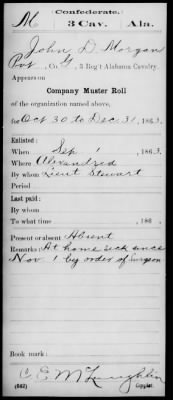 Confederate.
M 3 Cav. Ala.
John D Morgan
Pvt, Co. G, 3 Reg't Alabama Cavalry.
Appears on
Company Muster Roll
of the organization named above,
for Oct 30 to Dec 31, 1863.
Enlisted:
When Sep 1, 1863.
Where Alexandred
By whom Lieut Stewart
Period
Last paid:
By whom
To what time , 186 .
Present or absent Absent
Remarks: At home sick since
Nov 1 by order of Surgeon
Book mark:
C. E. McLaughlin
(642) Copyist.